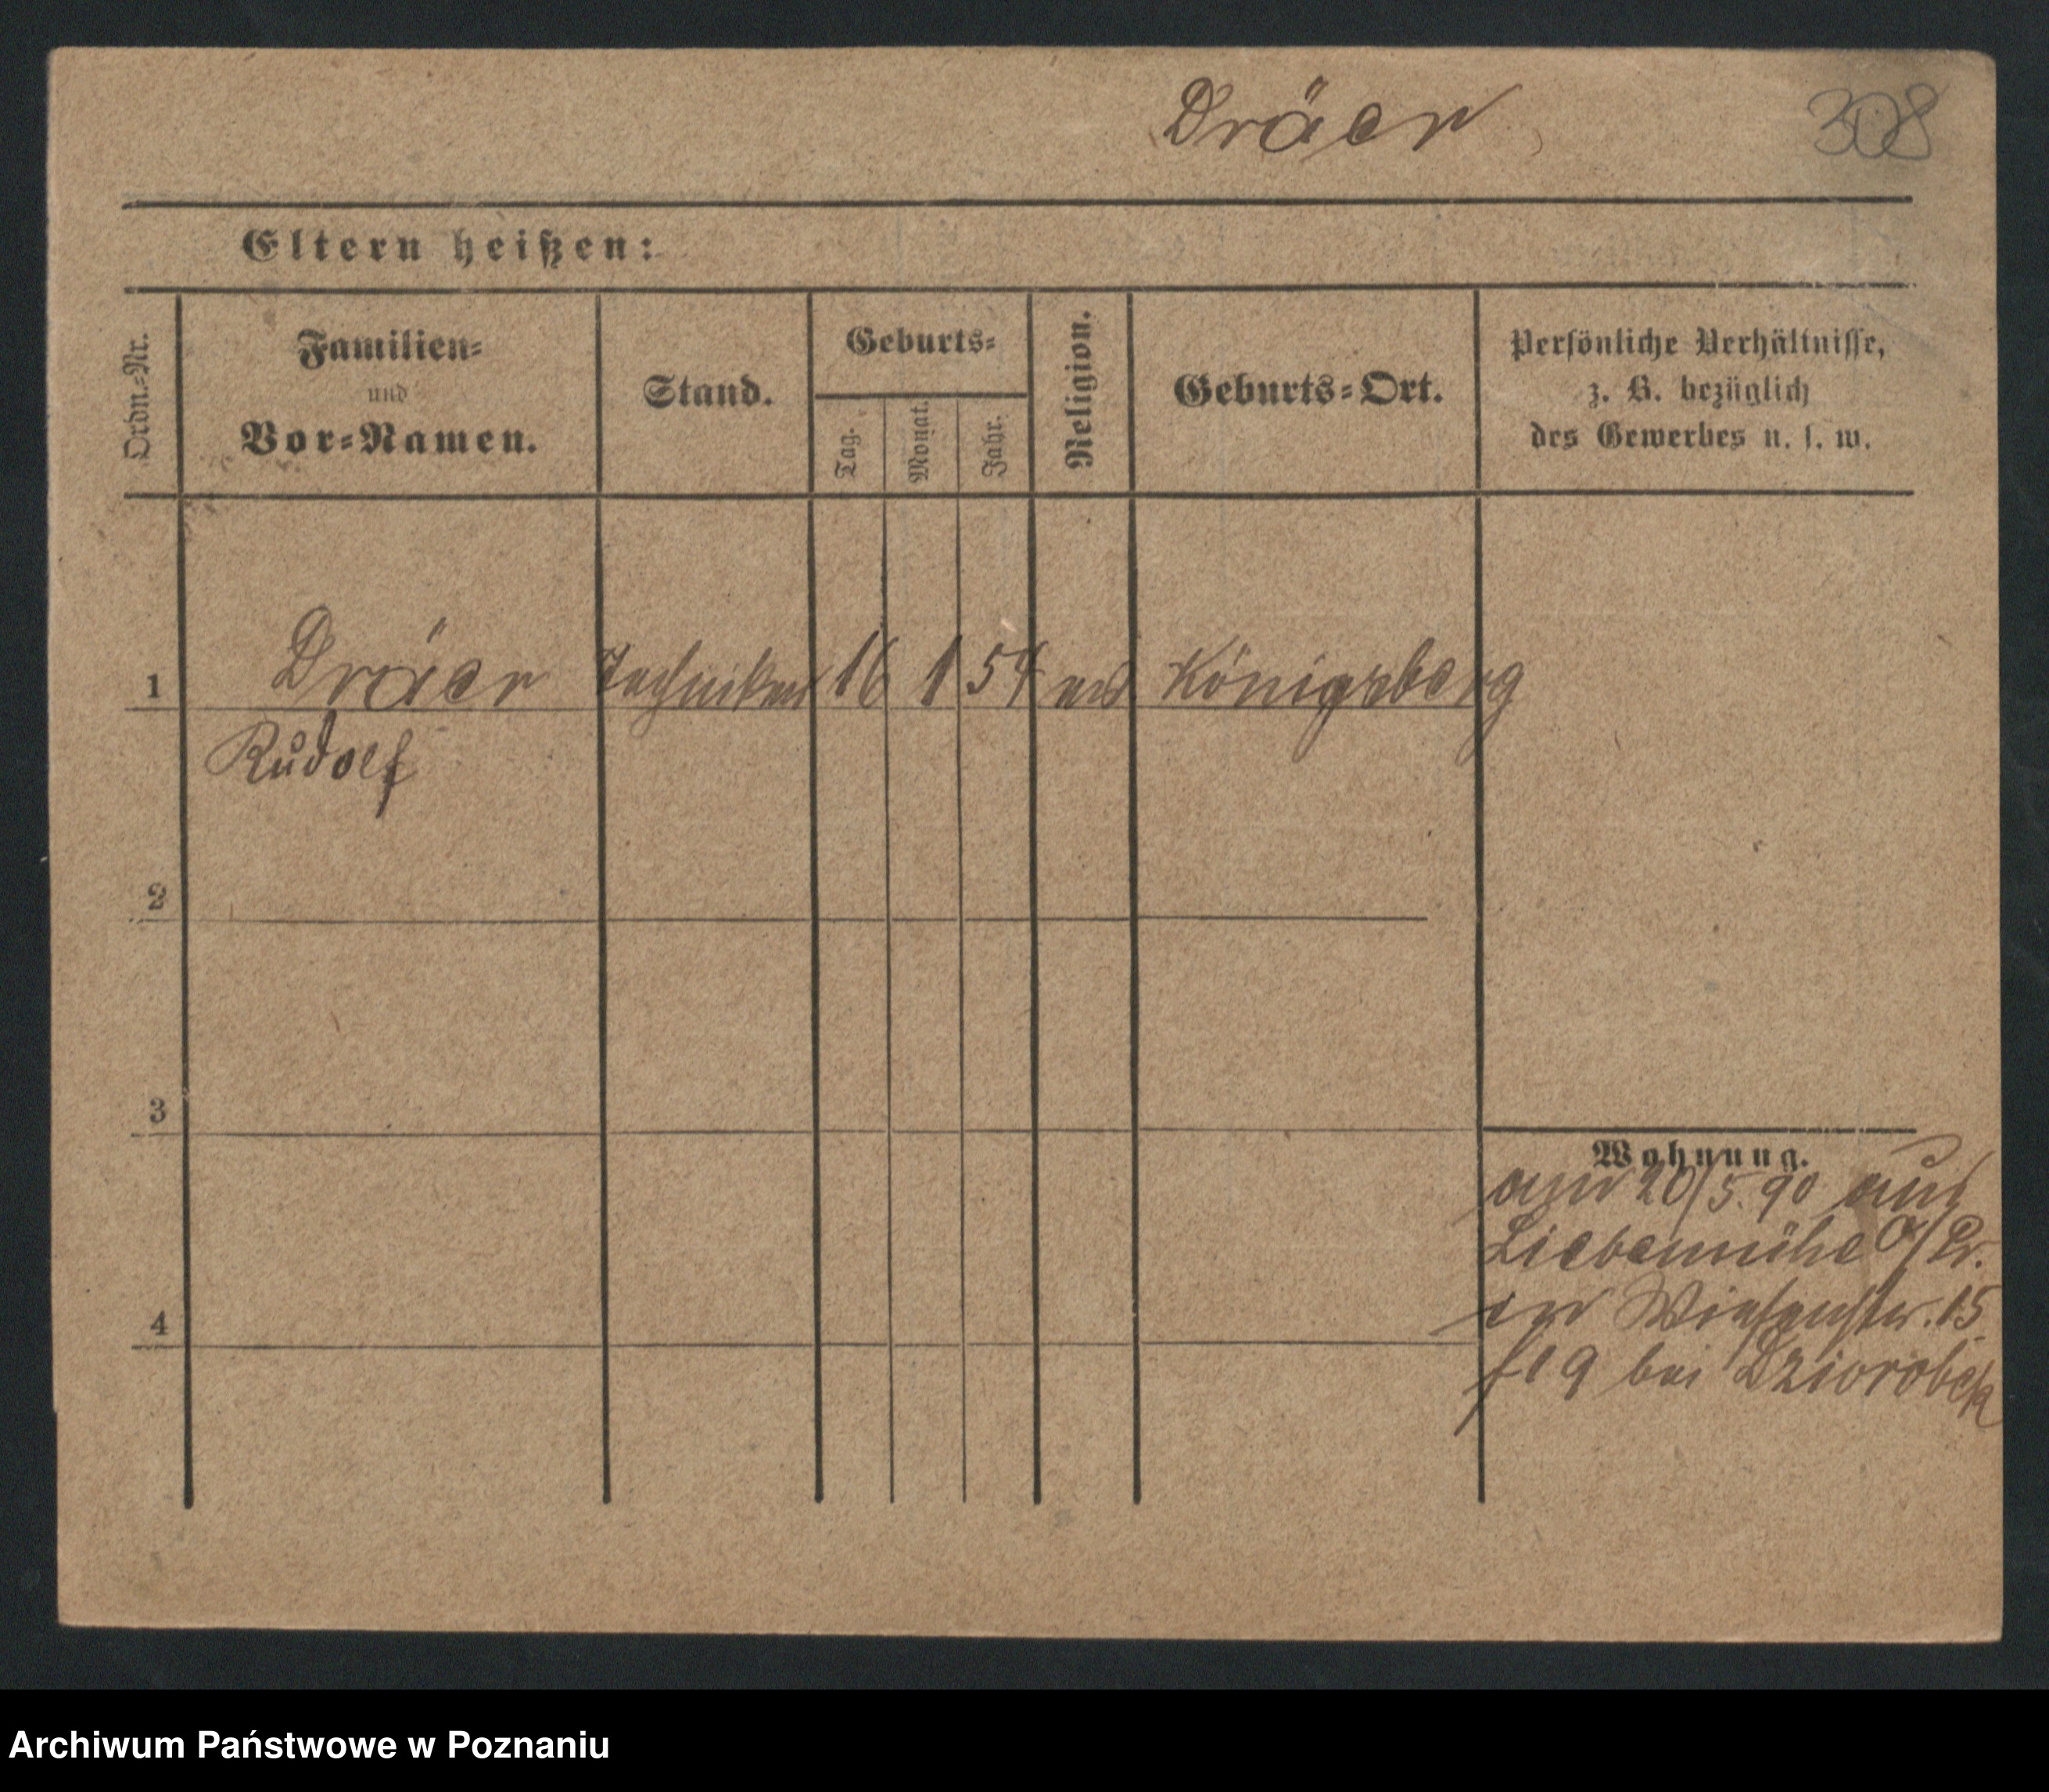 Dräer
308
Eltern heißen:
Ordn.-Nr.
Familien-
und
Vor-Namen.
Stand.
Geburts-
Tag.
Monat.
Jahr.
Religion.
Geburts-Ort.
Persönliche Verhältnisse,
z. B. bezüglich
des Gewerbes u. s. w.
1 Dräer Techniker 16 1 54 ev Königsberg
Rudolf
2
3
4
Wohnung.
20/5. 90 aus
Liebemühl O/Pr.
Wiesenstr. 15
bei
Archiwum Państwowe w Poznaniu